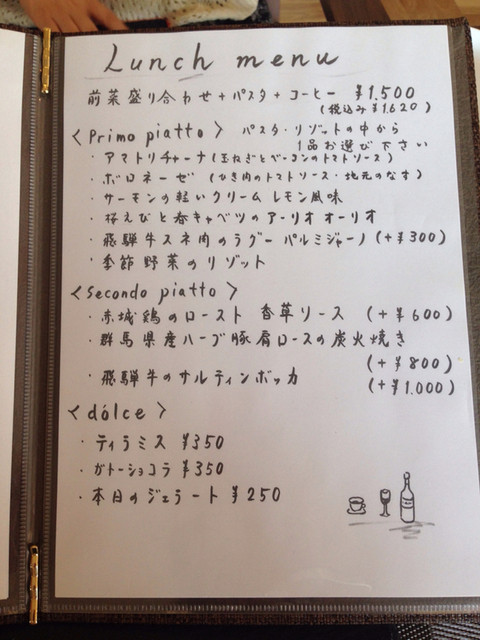 Lunch menu
前菜盛り合わせ+パスタ+コーヒー ¥1,500
(税込み¥1,620)
<Primo piatto> パスタ・リゾットの中から
1品お選び下さい
・アマトリチャーナ(玉ねぎとベーコンのトマトソース)
・ボロネーゼ(ひき肉のトマトソース・地元のなす)
・サーモンの軽いクリーム レモン風味
・桜えびと春キャベツのアーリオオーリオ
・飛騨牛スネ肉のラグー パルミジャーノ(+¥300)
・季節野菜のリゾット
<Secondo piatto>
・赤城鶏のロースト 香草ソース (+¥600)
・群馬県産ハーブ豚肩ロースの炭火焼き
(+¥800)
・飛騨牛のサルティンボッカ
(+¥1,000)
<dólce>
・ティラミス ¥350
・ガトーショコラ ¥350
・本日のジェラート ¥250